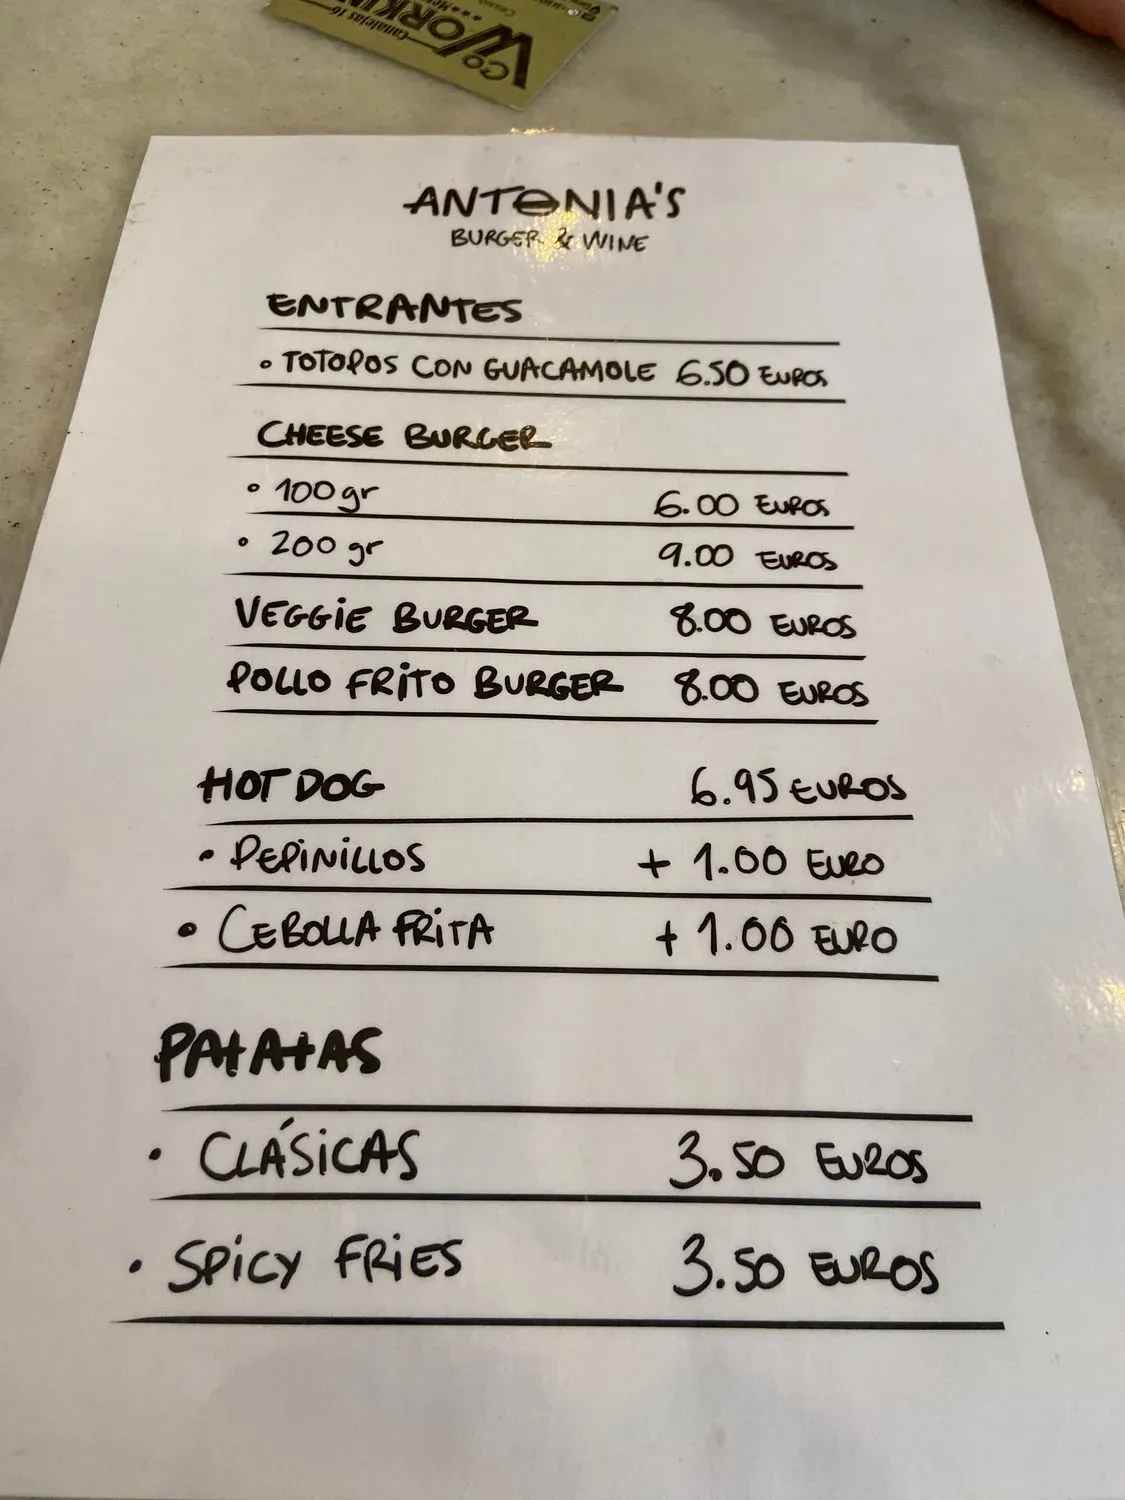 Co
WORKIN
Canalejas 16
ANTONIA'S
BURGER & WINE
ENTRANTES
• TOTOPOS CON GUACAMOLE 6.50 EUROS
CHEESE BURGER
• 100gr 6.00 EUROS
• 200 gr 9.00 EUROS
VEGGIE BURGER 8.00 EUROS
POLLO FRITO BURGER 8.00 EUROS
HOT DOG 6.95 EUROS
• PEPINILLOS + 1.00 EURO
• CEBOLLA FRITA + 1.00 EURO
PATATAS
• CLÁSICAS 3.50 EUROS
• SPICY FRIES 3.50 EUROS